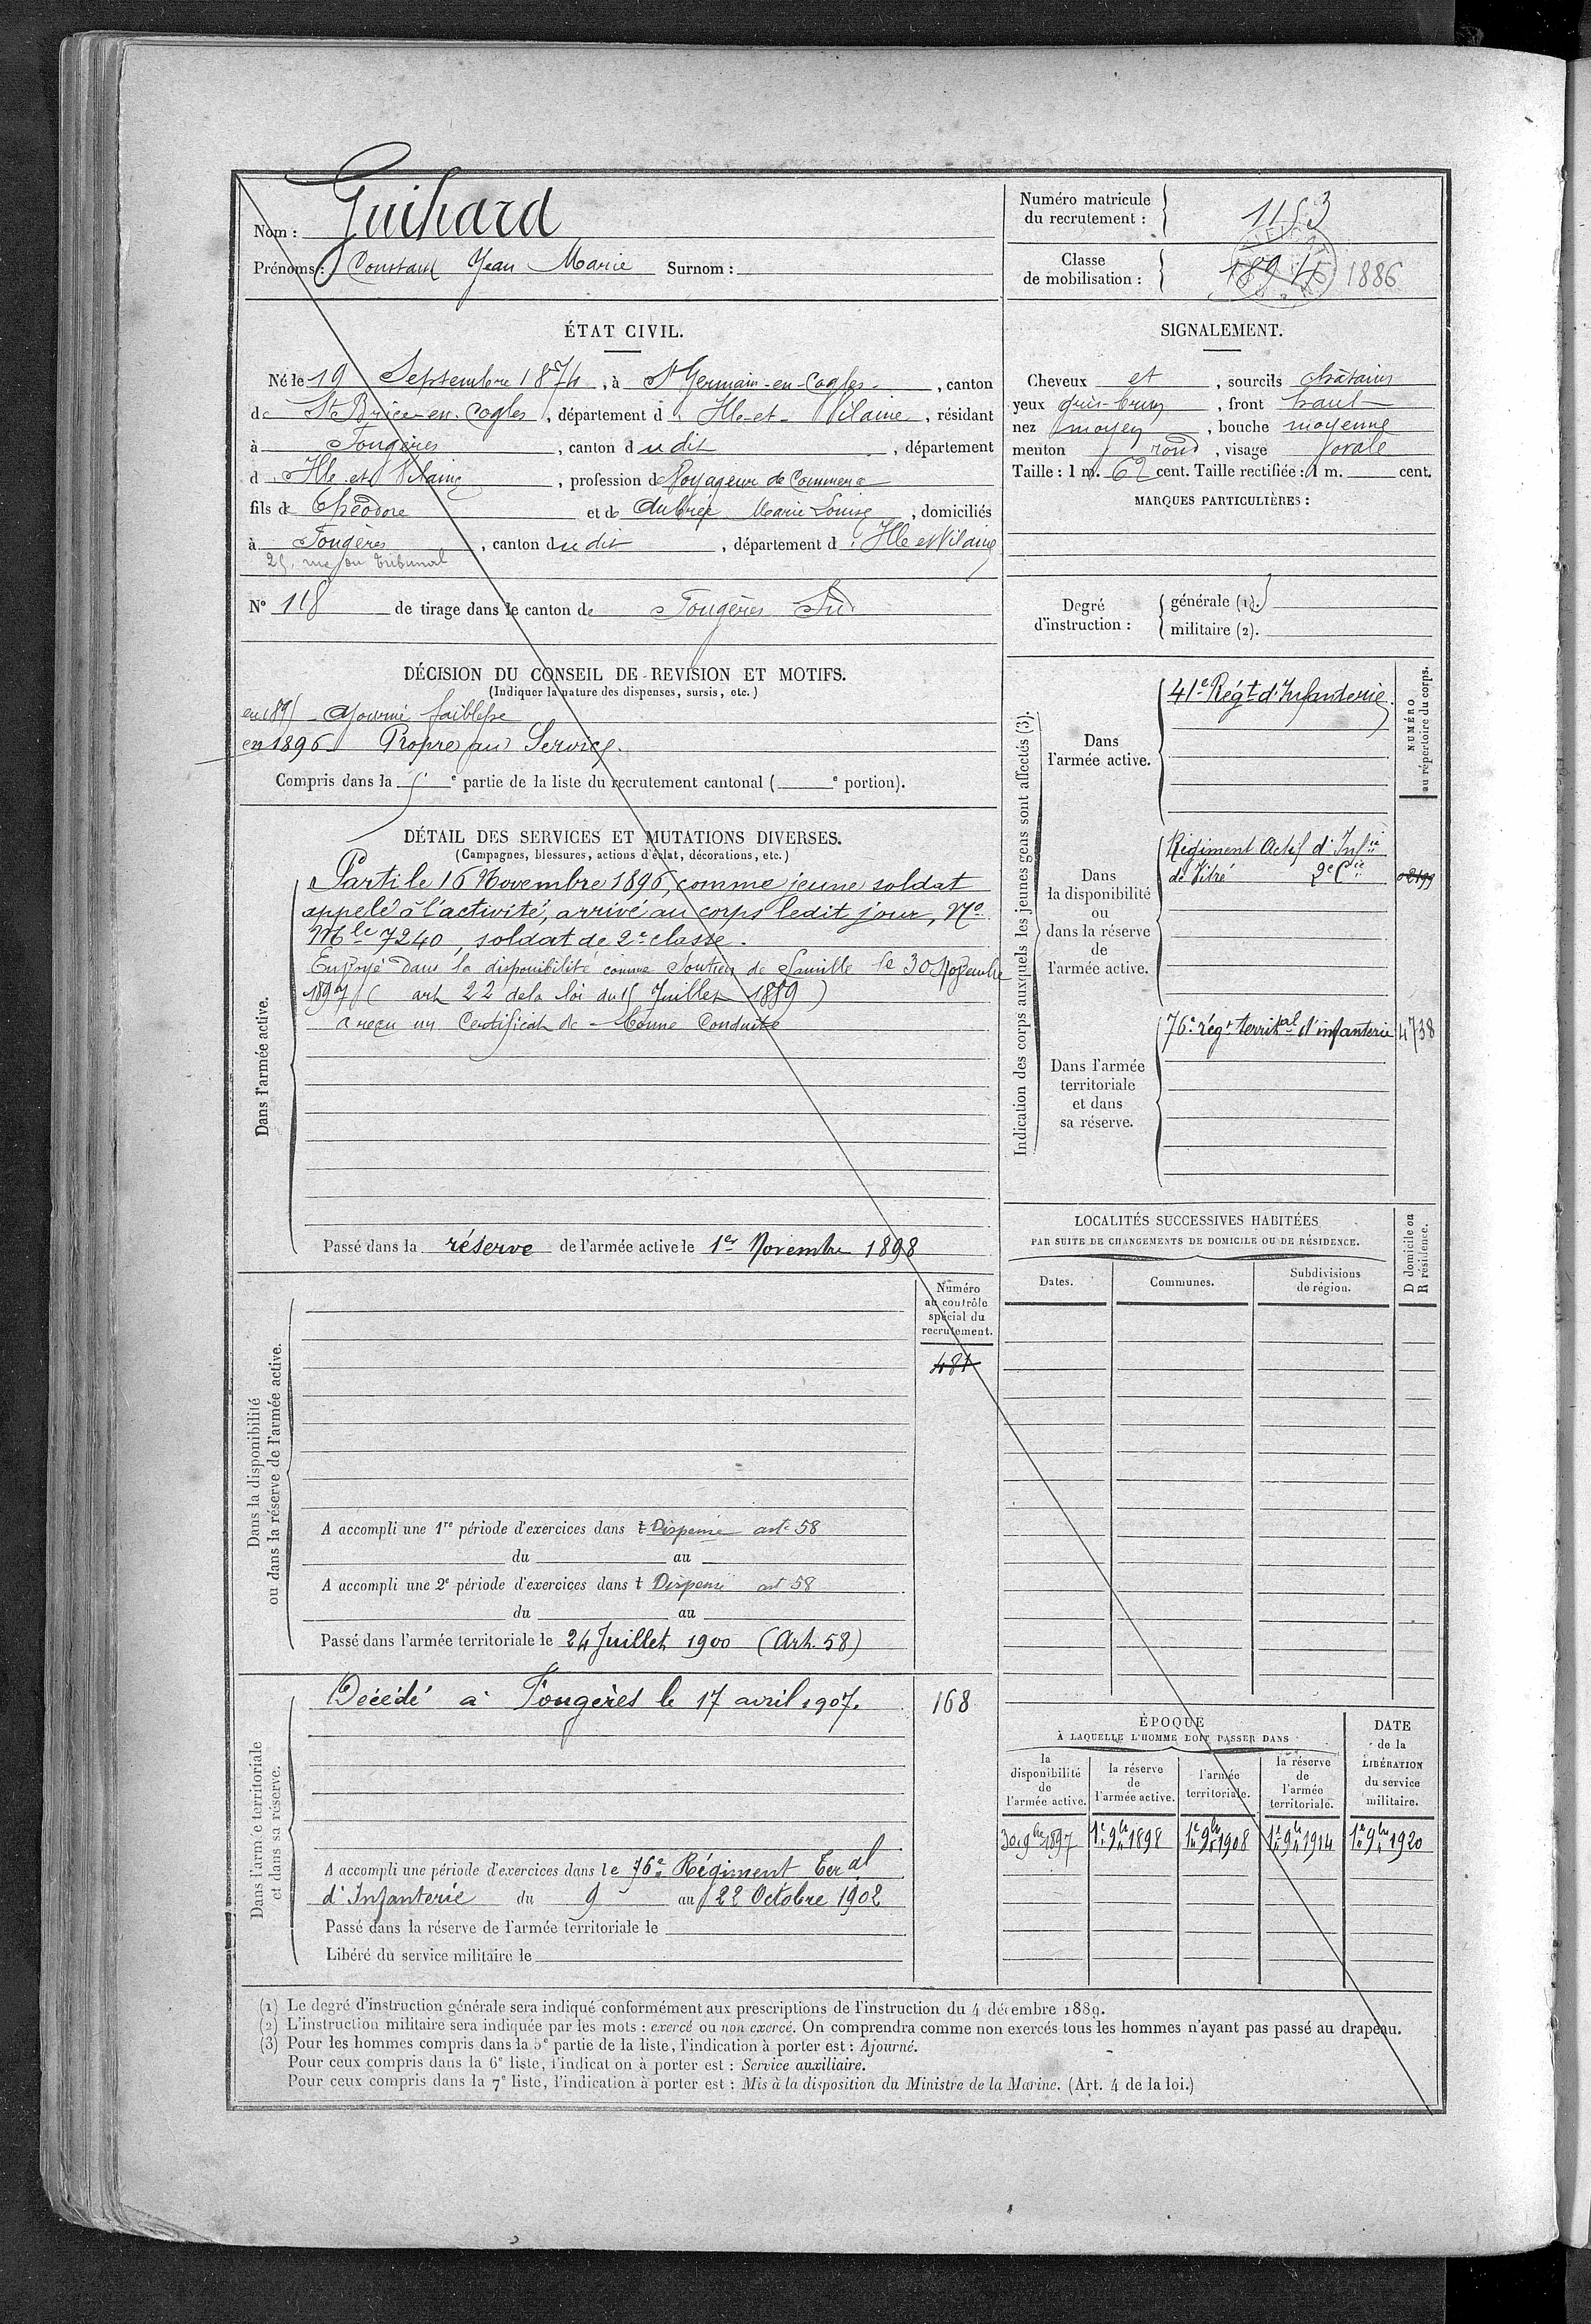 Nom : Guihard
Prénoms : Constant Jean Marie Surnom :
Numéro matricule
du recrutement : 1153
Classe
de mobilisation : 1894 1886
ÉTAT CIVIL.
Né le 19 Septembre 1874, à St Germain-en-Cogles, canton
de St Brice-en-Cogles, département d'Ille-et-Vilaine, résidant
à Fougères, canton dudit, département
d'Ille et Vilaine, profession de Voyageur de Commerce
fils de Théodore et de Aubrée Marie Louise, domiciliés
à Fougères, canton dudit, département d'Ille et Vilaine
25, rue du Tribunal
N° 118 de tirage dans le canton de Fougères Sud
SIGNALEMENT.
Cheveux et, sourcils châtains
yeux gris-brun, front haut
nez moyen, bouche moyenne
menton rond, visage ovale
Taille : 1 m. 62 cent. Taille rectifiée : 1 m. cent.
MARQUES PARTICULIÈRES :
Degré
d'instruction :
générale (1).
militaire (2).
DÉCISION DU CONSEIL DE REVISION ET MOTIFS.
(Indiquer la nature des dispenses, sursis, etc.)
en 1895 Ajourné faiblesse
en 1896 Propre au Service.
Compris dans la 5e partie de la liste du recrutement cantonal ( e portion).
DÉTAIL DES SERVICES ET MUTATIONS DIVERSES.
(Campagnes, blessures, actions d'éclat, décorations, etc.)
Dans l'armée active.
Parti le 16 Novembre 1896, comme jeune soldat
appelé à l'activité, arrivé au corps ledit jour, No
Mle 7240, soldat de 2e classe.
Envoyé dans la disponibilité comme soutien de famille le 30 Novembre
1897 (art 22 de la loi du 15 Juillet 1889)
a reçu un Certificat de bonne Conduite
Passé dans la réserve de l'armée active le 1er Novembre 1898
Indication des corps auxquels les jeunes gens sont affectés (3).
NUMÉRO
au répertoire du corps.
Dans
l'armée active.
41e Régt d'Infanterie.
Dans
la disponibilité
ou
dans la réserve
de
l'armée active.
Régiment Actif d'Infie
de Vitré 9e Cie
Dans l'armée
territoriale
et dans
sa réserve.
76e régt territal d'infanterie 4738
LOCALITÉS SUCCESSIVES HABITÉES
PAR SUITE DE CHANGEMENTS DE DOMICILE OU DE RÉSIDENCE.
Dates.
Communes.
Subdivisions
de région.
D domicile ou
R résidence.
Dans la disponibilité
ou dans la réserve de l'armée active.
Numéro
au contrôle
spécial du
recrutement.
481
A accompli une 1re période d'exercices dans l Dispensé art. 58
du au
A accompli une 2e période d'exercices dans l Dispensé art 58
du au
Passé dans l'armée territoriale le 24 Juillet 1900 (Art. 58)
Dans l'armée territoriale
et dans sa réserve.
Décédé à Fougères le 17 avril 1907. 168
A accompli une période d'exercices dans le 76e Régiment Teral
d'Infanterie du 9 au 22 Octobre 1902
Passé dans la réserve de l'armée territoriale le
Libéré du service militaire le
ÉPOQUE
À LAQUELLE L'HOMME DOIT PASSER DANS
la
disponibilité
de
l'armée active.
la réserve
de
l'armée active.
l'armée
territoriale.
la réserve
de
l'armée
territoriale.
DATE
de la
LIBÉRATION
du service
militaire.
30 9bre 1897 1er 9bre 1898 1er 9bre 1908 1er 9bre 1914 1er 9bre 1920
(1) Le degré d'instruction générale sera indiqué conformément aux prescriptions de l'instruction du 4 décembre 1889.
(2) L'instruction militaire sera indiquée par les mots : exercé ou non exercé. On comprendra comme non exercés tous les hommes n'ayant pas passé au drapeau.
(3) Pour les hommes compris dans la 5e partie de la liste, l'indication à porter est : Ajourné.
Pour ceux compris dans la 6e liste, l'indication à porter est : Service auxiliaire.
Pour ceux compris dans la 7e liste, l'indication à porter est : Mis à la disposition du Ministre de la Marine. (Art. 4 de la loi.)